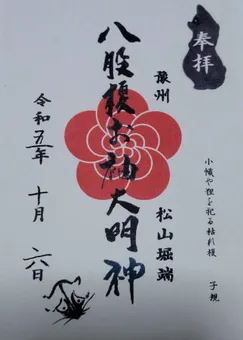 奉拝
豫州
松山堀端
八股榎お袖大明神
小幟や狸を祀る枯れ榎
子規
令和五年
十月
六日